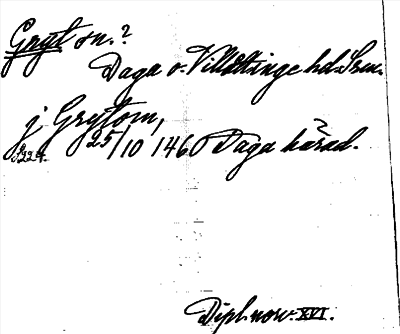 Gryt sn.?
Daga o. Villåttinge hd. Srm.
j Grytom,
25/10 1460 Daga härad.?
Dipl. nov. XVI.